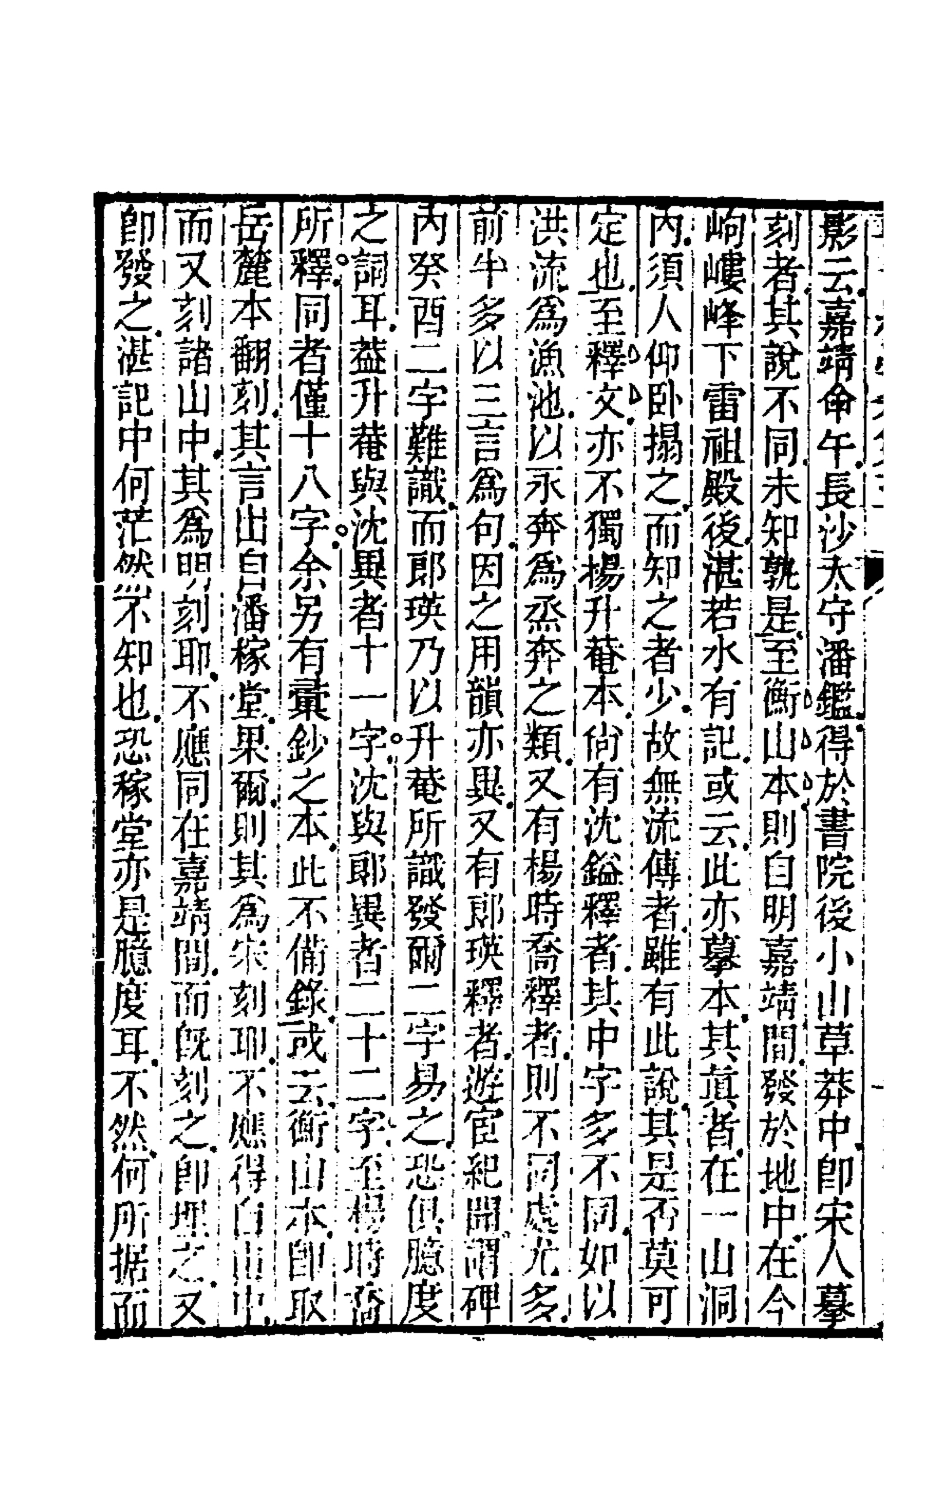 影云嘉靖甲午長沙太守潘鑑得於書院後小山草莽中卽宋人摹
刻者其說不同未知孰是至衡山本則自明嘉靖間發於地中在今
岣嶁峰下雷祖殿後湛若水有記或云此亦摹本其眞者在一山洞
內須人仰卧搨之而知之者少故無流傳者雖有此說其是否莫可
定也至釋文亦不獨楊升菴本尙有沈鎰釋者其中字多不同如以
洪流爲漁池以永奔爲烝奔之類又有楊時喬釋者則不同處尤多
前半多以三言爲句因之用韻亦異又有郎瑛釋者遊宦紀聞謂碑
內癸酉二字難識而郎瑛乃以升菴所識發爾二字易之恐俱臆度
之詞耳葢升菴與沈異者十一字沈與郎異者二十二字至楊時喬
所釋同者僅十八字余另有彙鈔之本此不備錄或云衡山本卽取
岳麓本翻刻其言出自潘稼堂果爾則其爲宋刻耶不應得自山中
而又刻諸山中其爲明刻耶不應同在嘉靖間而旣刻之卽埋之又
卽發之湛記中何茫然不知也恐稼堂亦是臆度耳不然何所据而